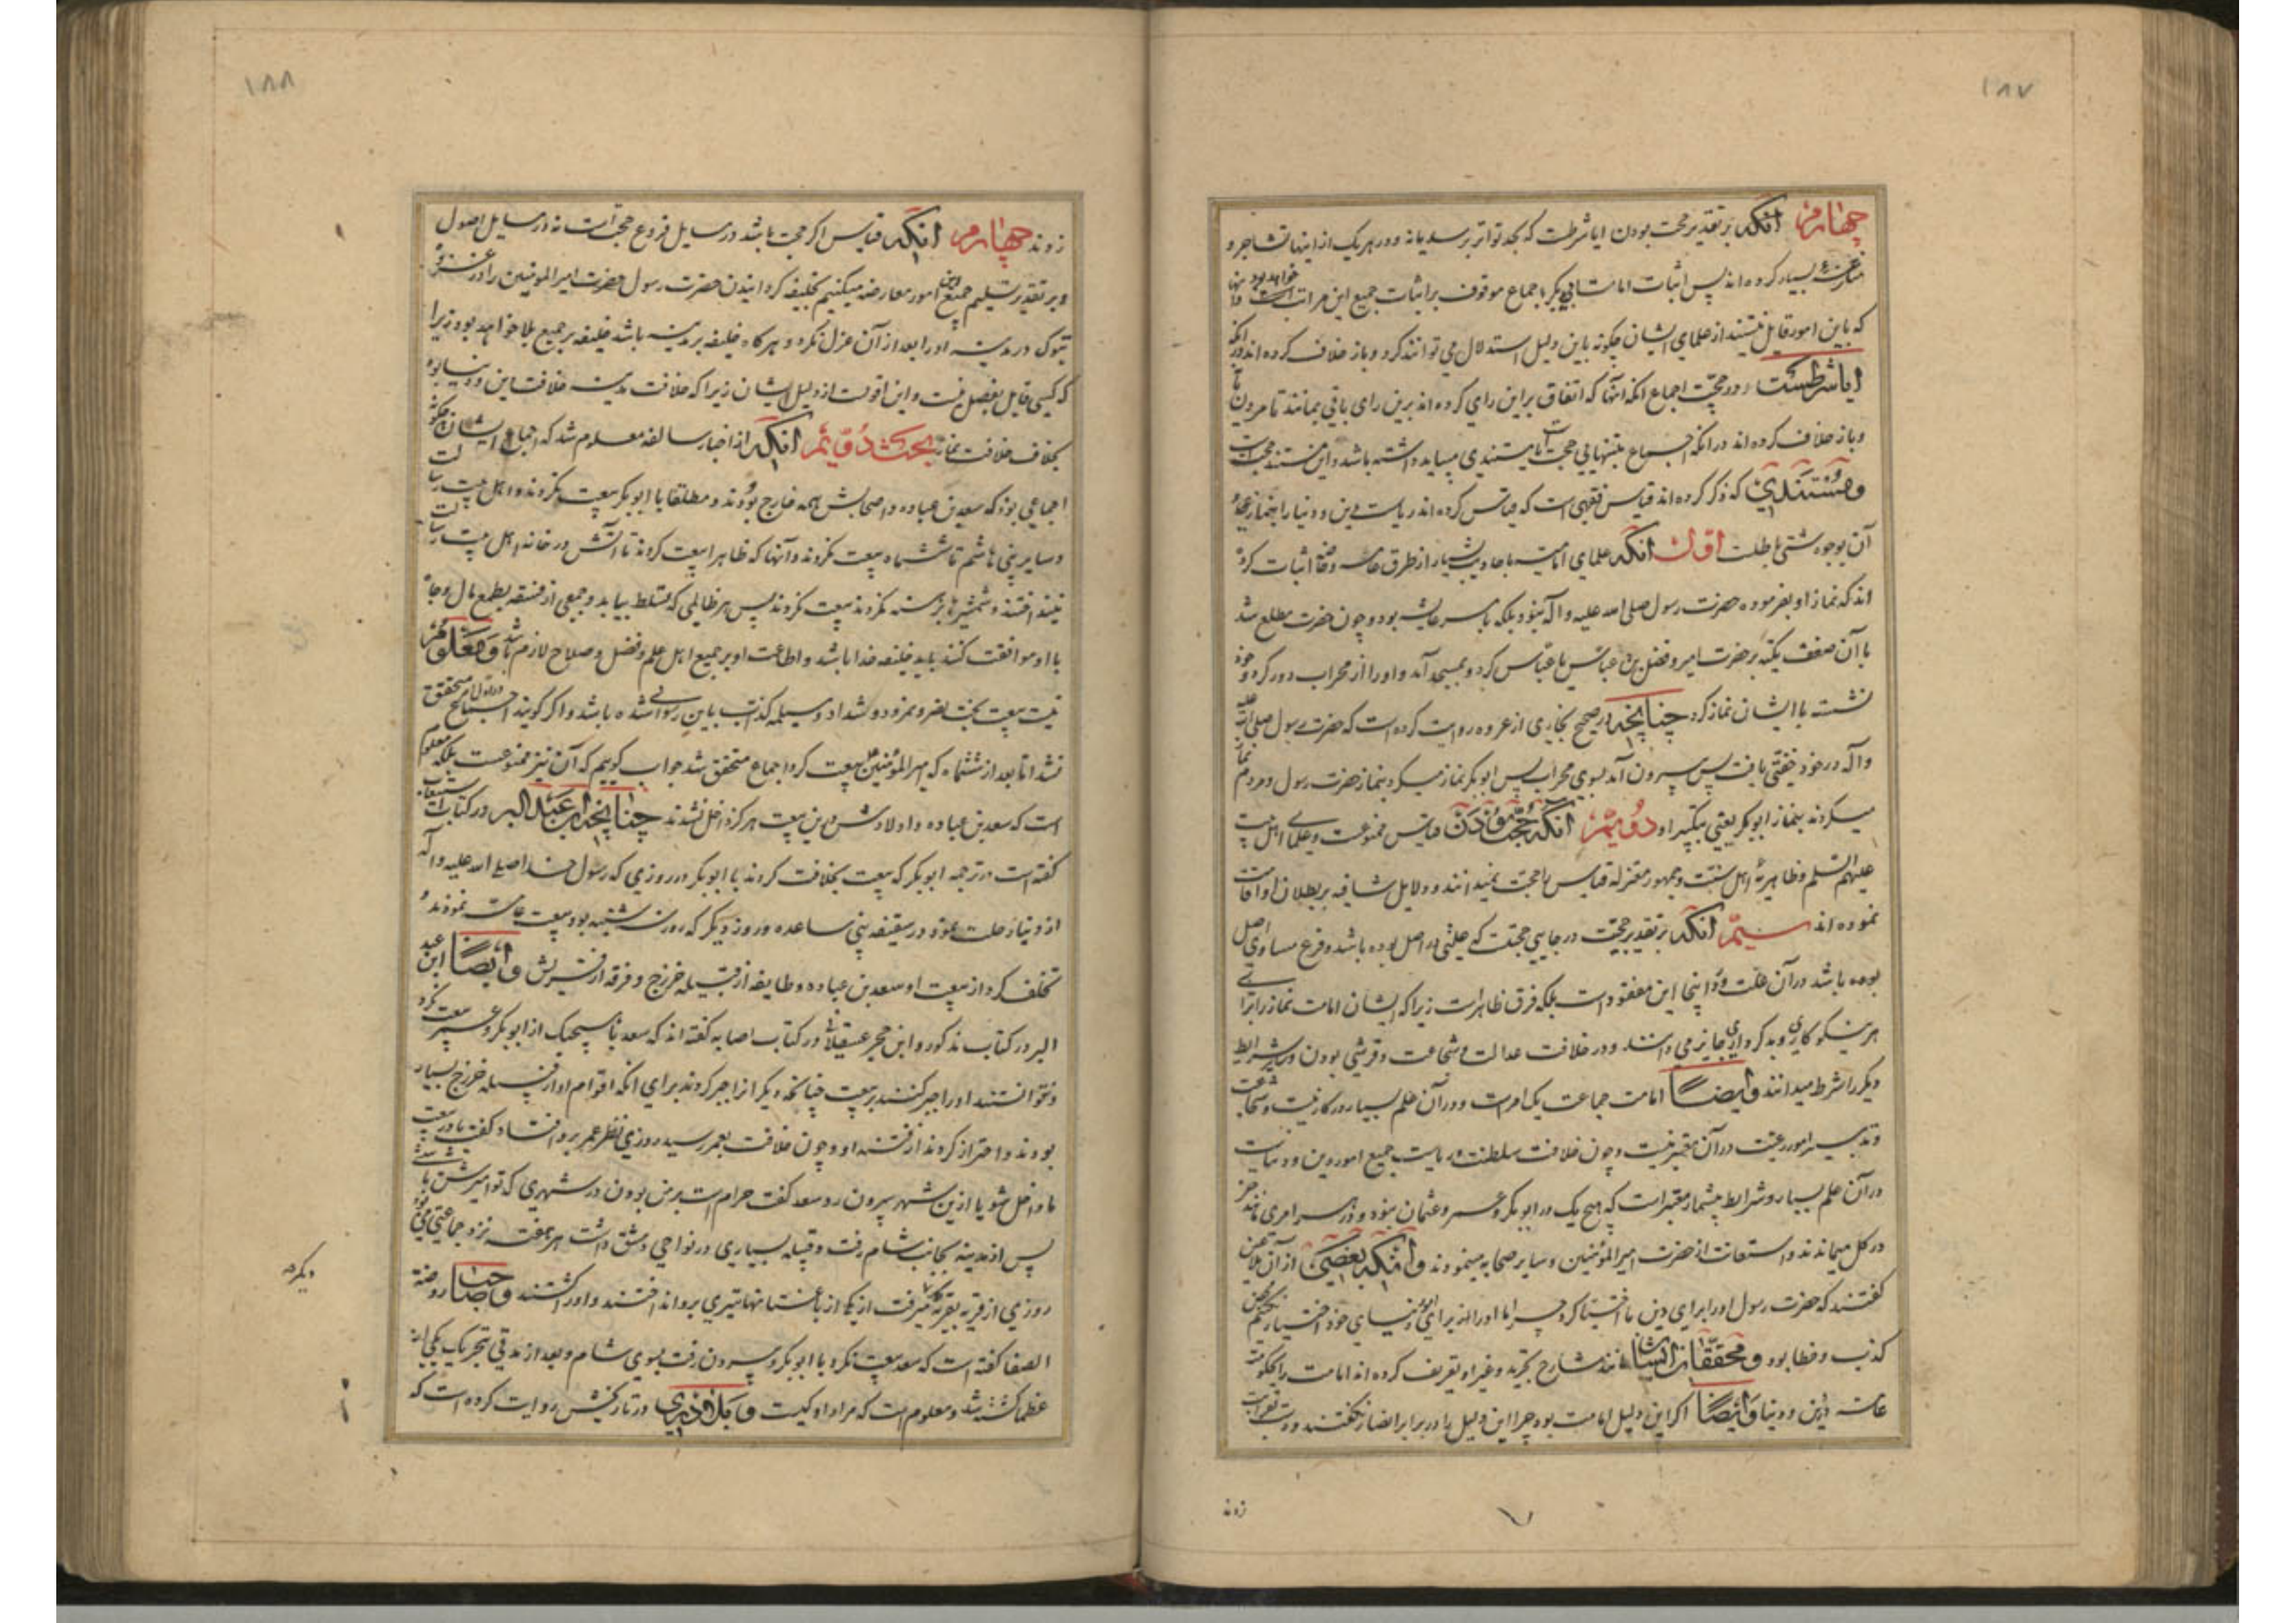 ۱۸۷
چهارم آنکه بر تقدیر حجت بودن ایا شرطست که بحد تواتر برسد یا نه و در هر یک از اینها تشاجر و
منازعه بسیار کرده اند پس اثبات امامت ابی بکر باجماع موقوف بر اثبات جمیع این مراتب است خواهد بود و آنها
که باین امور قایل نیستند از علمای ایشان چگونه باین دلیل استدلال می توانند کرد و باز خلاف کرده اند در آنکه
ایا شرطست در حجیت اجماع انکه آنها که اتفاق براین رای کرده اند برین رای باقی بمانند تا مردن یا نه
و باز خلاف کرده اند در انکه اجماع بتنهایی حجت است یا مستندی میباید داشته باشد و این مستند حجت است
و مستندی که ذکر کرده اند قیاس فقهی است که قیاس کرده اند ریاست دین و دنیا را بنماز بوجوه
آن بوجوه شتی باطلست اول انکه علمای امامیه باحادیث بسیار از طرق عامه و خاصه اثبات کرده
اند که نماز او بفرموده حضرت رسول صلی الله علیه و اله نبود بلکه بامر عایشه بود و چون حضرت مطلع شد
با آن ضعف تکیه بر حضرت امیر و فضل بن عباس یا عباس کرد و بمسجد آمد و او را از محراب دور کرد و خود
نشسته با ایشان نماز کرد چنانچه در صحیح بخاری از عروه روایت کرده است که حضرت رسول صلی الله علیه
و آله در خود خفتی یافت پس بیرون آمد بسوی محراب پس ابو بکر نماز میکرد بنماز حضرت رسول و مردم نماز
میکردند بنماز ابو بکر یعنی بتکبیر او دویم انکه حجت بودن قیاس ممنوعست و علمای اهل بیت
علیهم السلام و ظاهریه اهل سنت و جمهور معتزله قیاس را حجت نمیدانند و دلایل شافیه بر بطلان او اقامت
نموده اند سیم انکه بر تقدیر حجیت در جایی حجتست که علتی در اصل بوده باشد و فرع مساوی اصل
بوده باشد در آن علت و در اینجا این مفقود است بلکه فرق ظاهر است زیرا که ایشان امامت نماز را برای
هر نیکو کاری و بد کرداری جایز می دانند و در خلافت عدالت و شجاعت و قرشی بودن و سایر شرایط
دیگر را شرط میدانند و ایضا امامت جماعت یک امر است و در آن علم بسیار در کار نیست و شجاعت
و تدبیر امور رعیت در آن معتبر نیست و چون خلافت سلطنت و ریاست جمیع امور دین و دنیاست
در آن علم بسیار و شرایط بیشمار معتبر است که هیچ یک در ابو بکر و عمر و عثمان نبود و در هر امری مانند خر
در گل میماندند و استعانت از حضرت امیر المؤمنین و سایر صحابه مینمودند و آنکه بعضی از آن ملاعین
گفتند که حضرت رسول او را برای دین ما اختیار کرد چرا ما او را از برای امور دنیای خود اختیار نکنیم محض
کذب و خطا بود و محققان ایشان مانند شارح تجرید و غیر او تعریف کرده اند امامت را بحکومت
عامه در دین و دنیا و ایضا اگر این دلیل امامت بود چرا این دلیل را در برابر انصار نگفتند و دست بقرابت
زوند
۱۸۸
زوند چهارم انکه قیاس اگر حجت باشد در مسایل فروع حجت است نه در مسایل اصول
و بر تقدیر تسلیم جمیع این امور معارضه میکنیم بخلیفه گردانیدن حضرت رسول حضرت امیر المومنین را در غزوه
تبوک در مدینه و او را بعد از آن عزل نکرد و هر گاه خلیفه بر مدینه باشد خلیفه بر جمیع بلاد خواهد بود زیرا
که کسی قایل بفصل نیست و این اقویست از دلیل ایشان زیرا که خلافت مدینه خلافت دین و دنیا بود
بخلاف خلافت نماز بحث دویم انکه از اخبار سالفه معلوم شد که اجماع ایشان چگونه
اجماعی بود که سعد بن عباده و اصحابش همه خارج بودند و مطلقا با ابو بکر بیعت نکردند و اهل بیت رسالت
و سایر بنی هاشم تا ششماه بیعت نکردند و آنها که ظاهرا بیعت کردند تا آتش در خانه اهل بیت رسالت
نینداختند و شمشیرها برهنه نکردند بیعت نکردند پس هر ظالمی که تسلط بیابد و جمعی از فسقه بطمع مال و جاه
با او موافقت کنند باید خلیفه خدا باشد و اطاعت او بر جمیع اهل علم و فضل و صلاح لازم باشد و معلوم
نیست بیعت بخت نصر و نمرود و شداد و مسیلمه کذاب باین رسوایی شده باشد و اگر گویند اجماع در اول متحقق
نشد اما بعد از ششماه که امیر المؤمنین بیعت کرد اجماع متحقق شد جواب گویم که آن نیز ممنوعست بلکه معلوم
است که سعد بن عباده و اولادش در این بیعت هرگز داخل نشدند چنانچه ابن عبد البر در کتاب استیعاب
گفته است در ترجمه ابو بکر که بیعت بخلافت کردند با ابو بکر در روزی که رسول خدا صلی الله علیه و آله
از دنیا رحلت نمود در سقیفه بنی ساعده و روز دیگر که روز سه شنبه بود بیعت عامه نمودند و
تخلف کرد از بیعت او سعد بن عباده و طایفه از قبیله خزرج و فرقه از قریش و ایضا ابن عبد
البر در کتاب مذکور و ابن حجر عسقلانی در کتاب اصابه گفته اند که سعد با هیچیک از ابو بکر و عمر بیعت نکرد
و نتوانستند او را جبر کنند بر بیعت چنانچه دیگر انرا جبر کردند برای انکه اقوام او از قبیله خزرج بسیار
بودند و احتراز کردند از فتنه او و چون خلافت بعمر رسید روزی نظر عمر بر او افتاد گفت یا در بیعت
ما داخل شو یا ازین شهر بیرون رو سعد گفت حرام است بر من بودن در شهری که تو امیرش باشی
پس از مدینه بجانب شام رفت و قبیله بسیاری در نواحی دمشق داشت هر هفته نزد جماعتی می بود
روزی از قریه بقریه دیگر میرفت از باغستانها تیری بر او انداختند و او را کشتند و صاحب روضة
الصفا گفته است که سعد بیعت نکرد با ابو بکر و بیرون رفت بسوی شام و بعد از مدتی بتحریک یکی از
عظما کشته شد و معلوم است که مراد او کیست و بلاذری در تاریخش روایت کرده است که